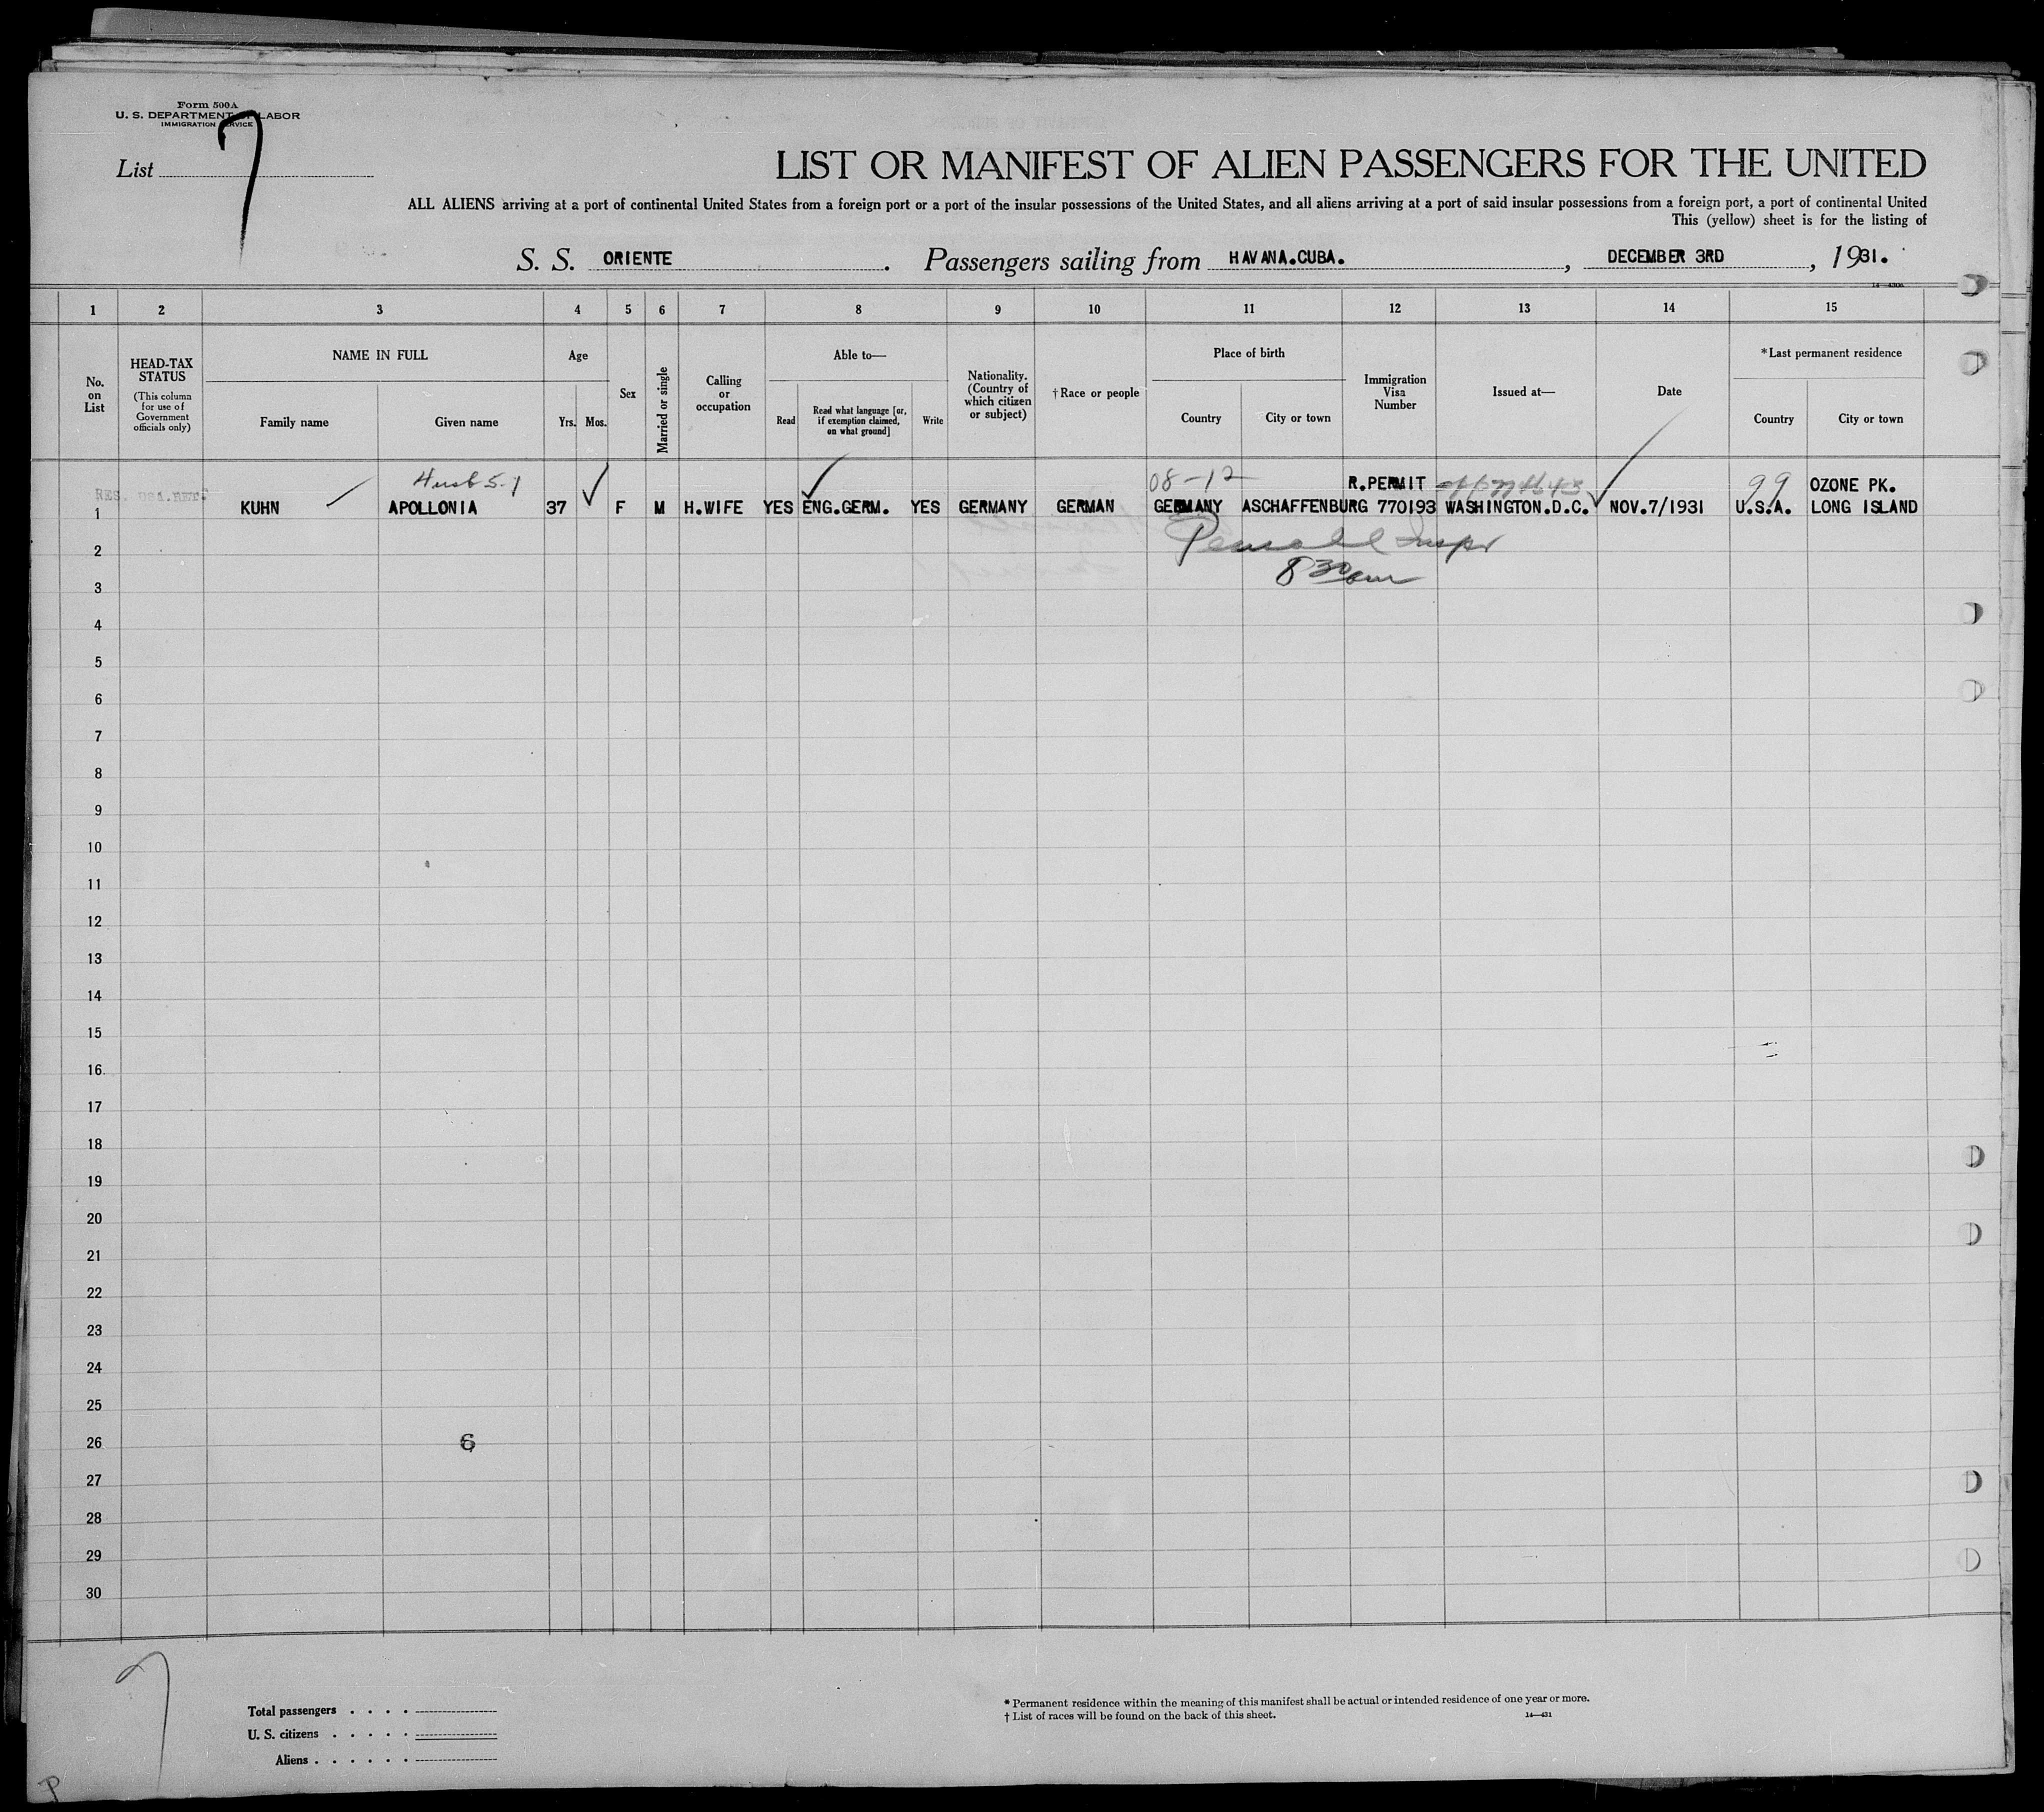 Form 500A
U. S. DEPARTMENT OF LABOR
IMMIGRATION SERVICE
List 7
LIST OR MANIFEST OF ALIEN PASSENGERS FOR THE UNITED
ALL ALIENS arriving at a port of continental United States from a foreign port or a port of the insular possessions of the United States, and all aliens arriving at a port of said insular possessions from a foreign port, a port of continental United
This (yellow) sheet is for the listing of
S. S. ORIENTE. Passengers sailing from HAVANA.CUBA., DECEMBER 3RD, 1931.
1 2 3 4 5 6 7 8 9 10 11 12 13 14 15
No. on List
HEAD-TAX STATUS
(This column for use of Government officials only)
NAME IN FULL
Family name Given name
Age
Yrs. Mos.
Sex
Married or single
Calling or occupation
Able to—
Read
Read what language [or, if exemption claimed, on what ground]
Write
Nationality. (Country of which citizen or subject)
†Race or people
Place of birth
Country City or town
Immigration Visa Number
Issued at—
Date
*Last permanent residence
Country City or town
08-12 R.PERMIT 99 OZONE PK.
1 KUHN APOLLONIA 37 F M H.WIFE YES ENG.GERM. YES GERMANY GERMAN GERMANY ASCHAFFENBURG 770193 WASHINGTON.D.C. NOV.7/1931 U.S.A. LONG ISLAND
Inspr
2
8 30 am
3
4
5
6
7
8
9
10
11
12
13
14
15
16
17
18
19
20
21
22
23
24
25
26 6
27
28
29
30
7
Total passengers . . . .
U. S. citizens . . . . .
Aliens . . . . . .
* Permanent residence within the meaning of this manifest shall be actual or intended residence of one year or more.
† List of races will be found on the back of this sheet.
14—431